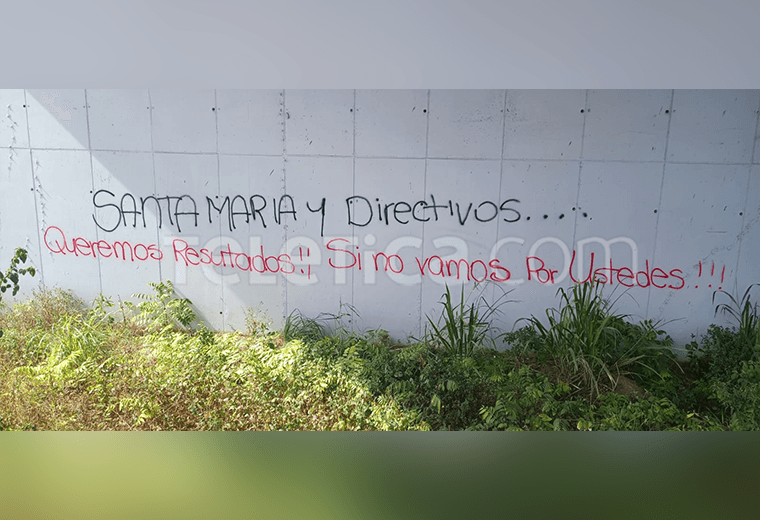 SANTA MARIA y Directivos.....
Queremos Resultados!! Si no vamos Por Ustedes!!!
teletica.com